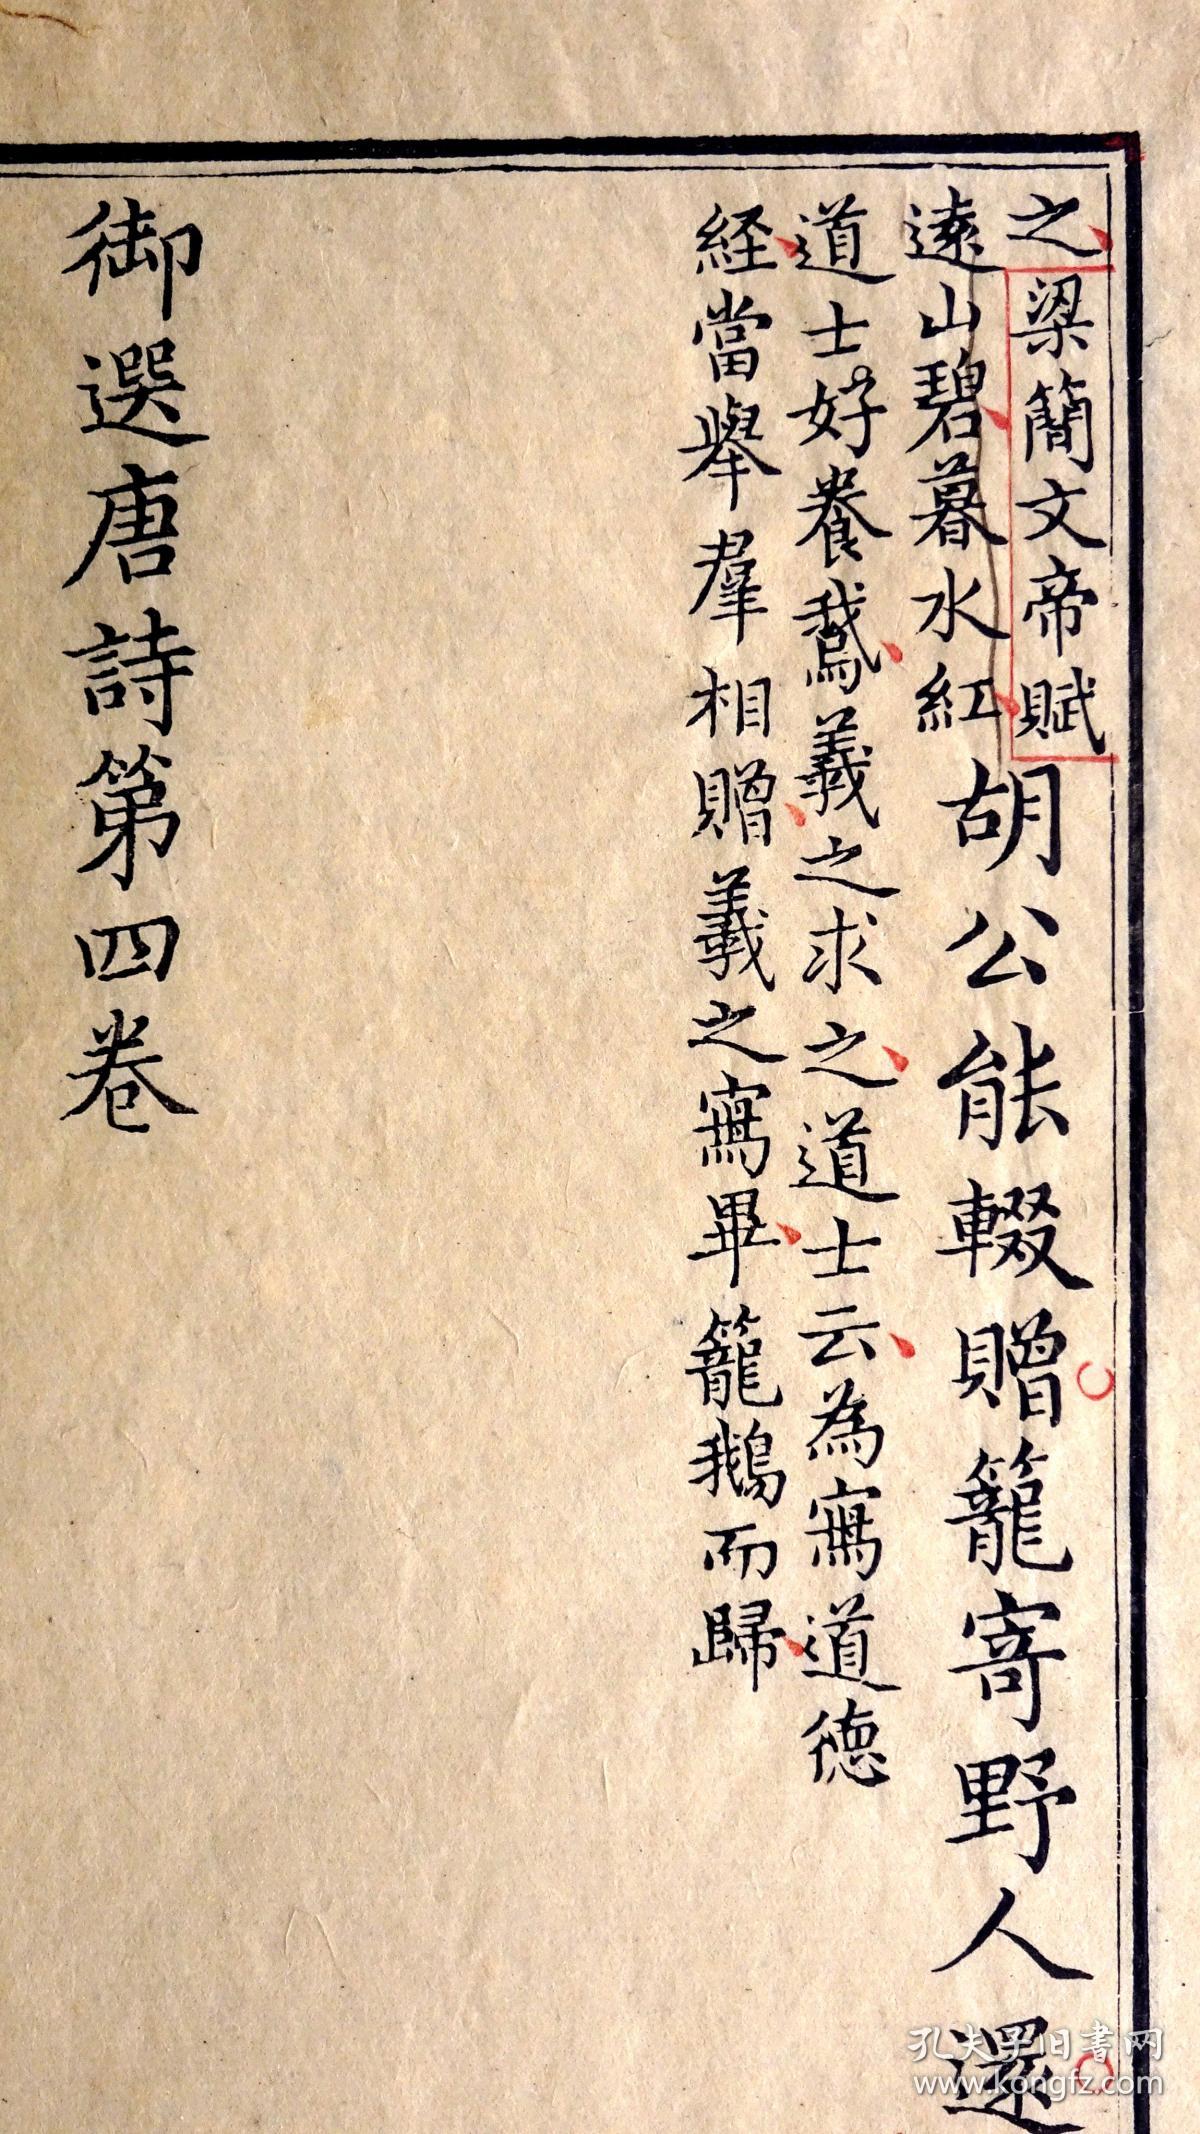 之梁簡文帝賦
遠山碧暮水紅
胡公能輟贈籠寄野人還
道士好養鵞羲之求之道士云為寫道徳
経當舉羣相贈羲之寫畢籠鵝而歸
御選唐詩第四卷
孔夫子旧书网
www.kongfz.com